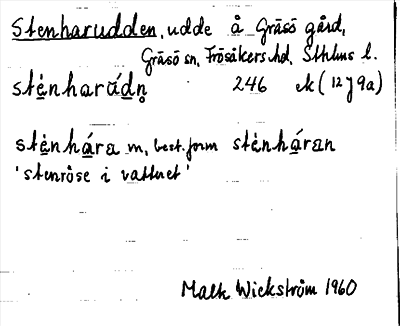 Stenharudden, udde å Gräsö gård,
Gräsö sn, Frösåkers hd, Sthlms l.
stènharúdn̥ 246 ek (12 J 9a)
stènhára m, best. form stènháran
'stenröse i vattnet'
Malk Wickström 1960